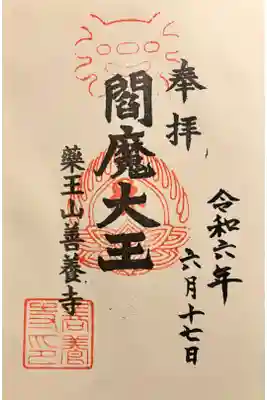 奉拝
令和六年
六月十七日
閻魔大王
藥王山善養寺
善養寺印